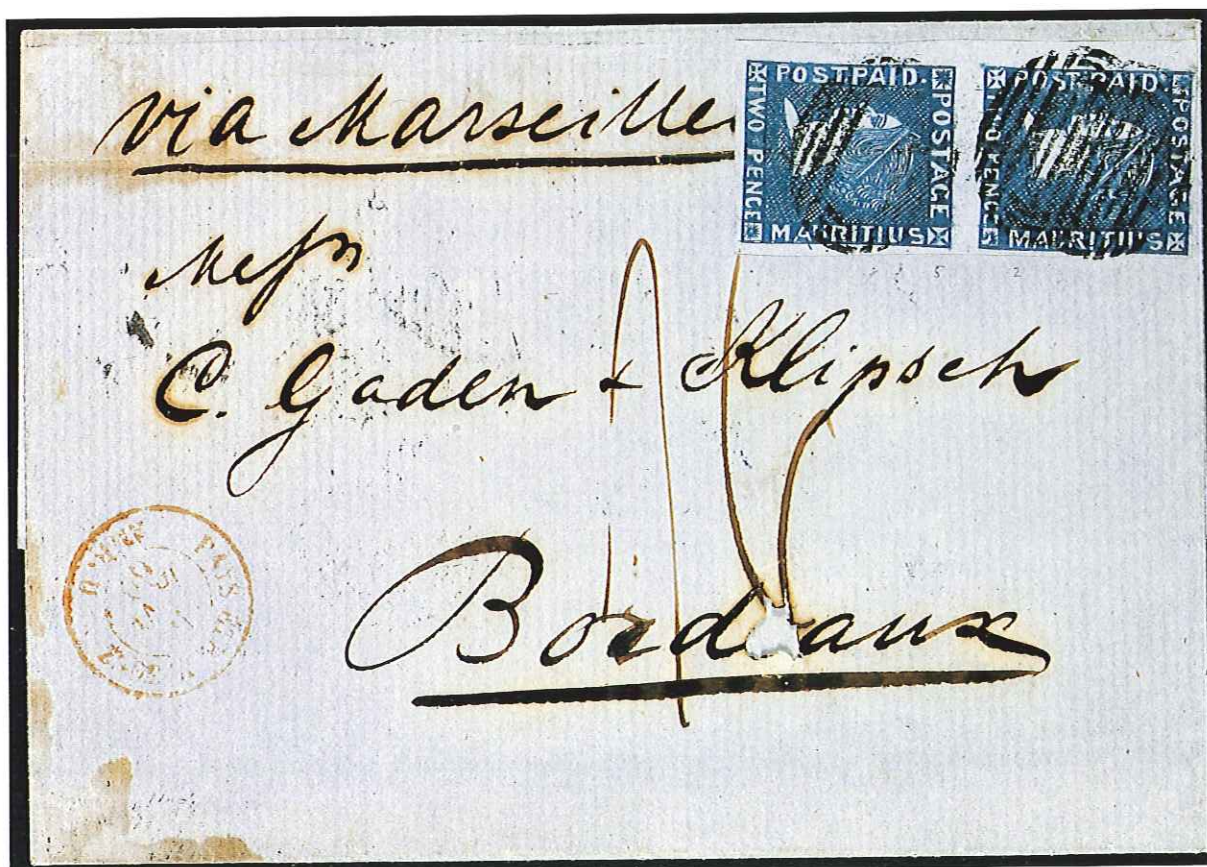 via Marseille
POST PAID.
TWO PENCE
POSTAGE
MAURITIUS
POST PAID
PENCE
POSTAGE
MAURITIUS
5 2
Messrs
C. Gaden & Klipsch
Bordeaux